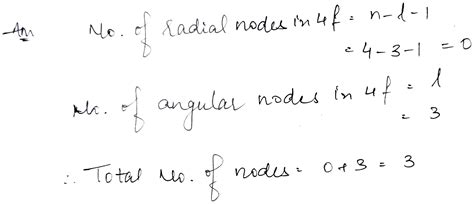 Ans No. of radial nodes in 4f = n-l-1
= 4-3-1 = 0
No. of angular nodes in 4f = l
= 3
∴ Total No. of nodes = 0+3 = 3